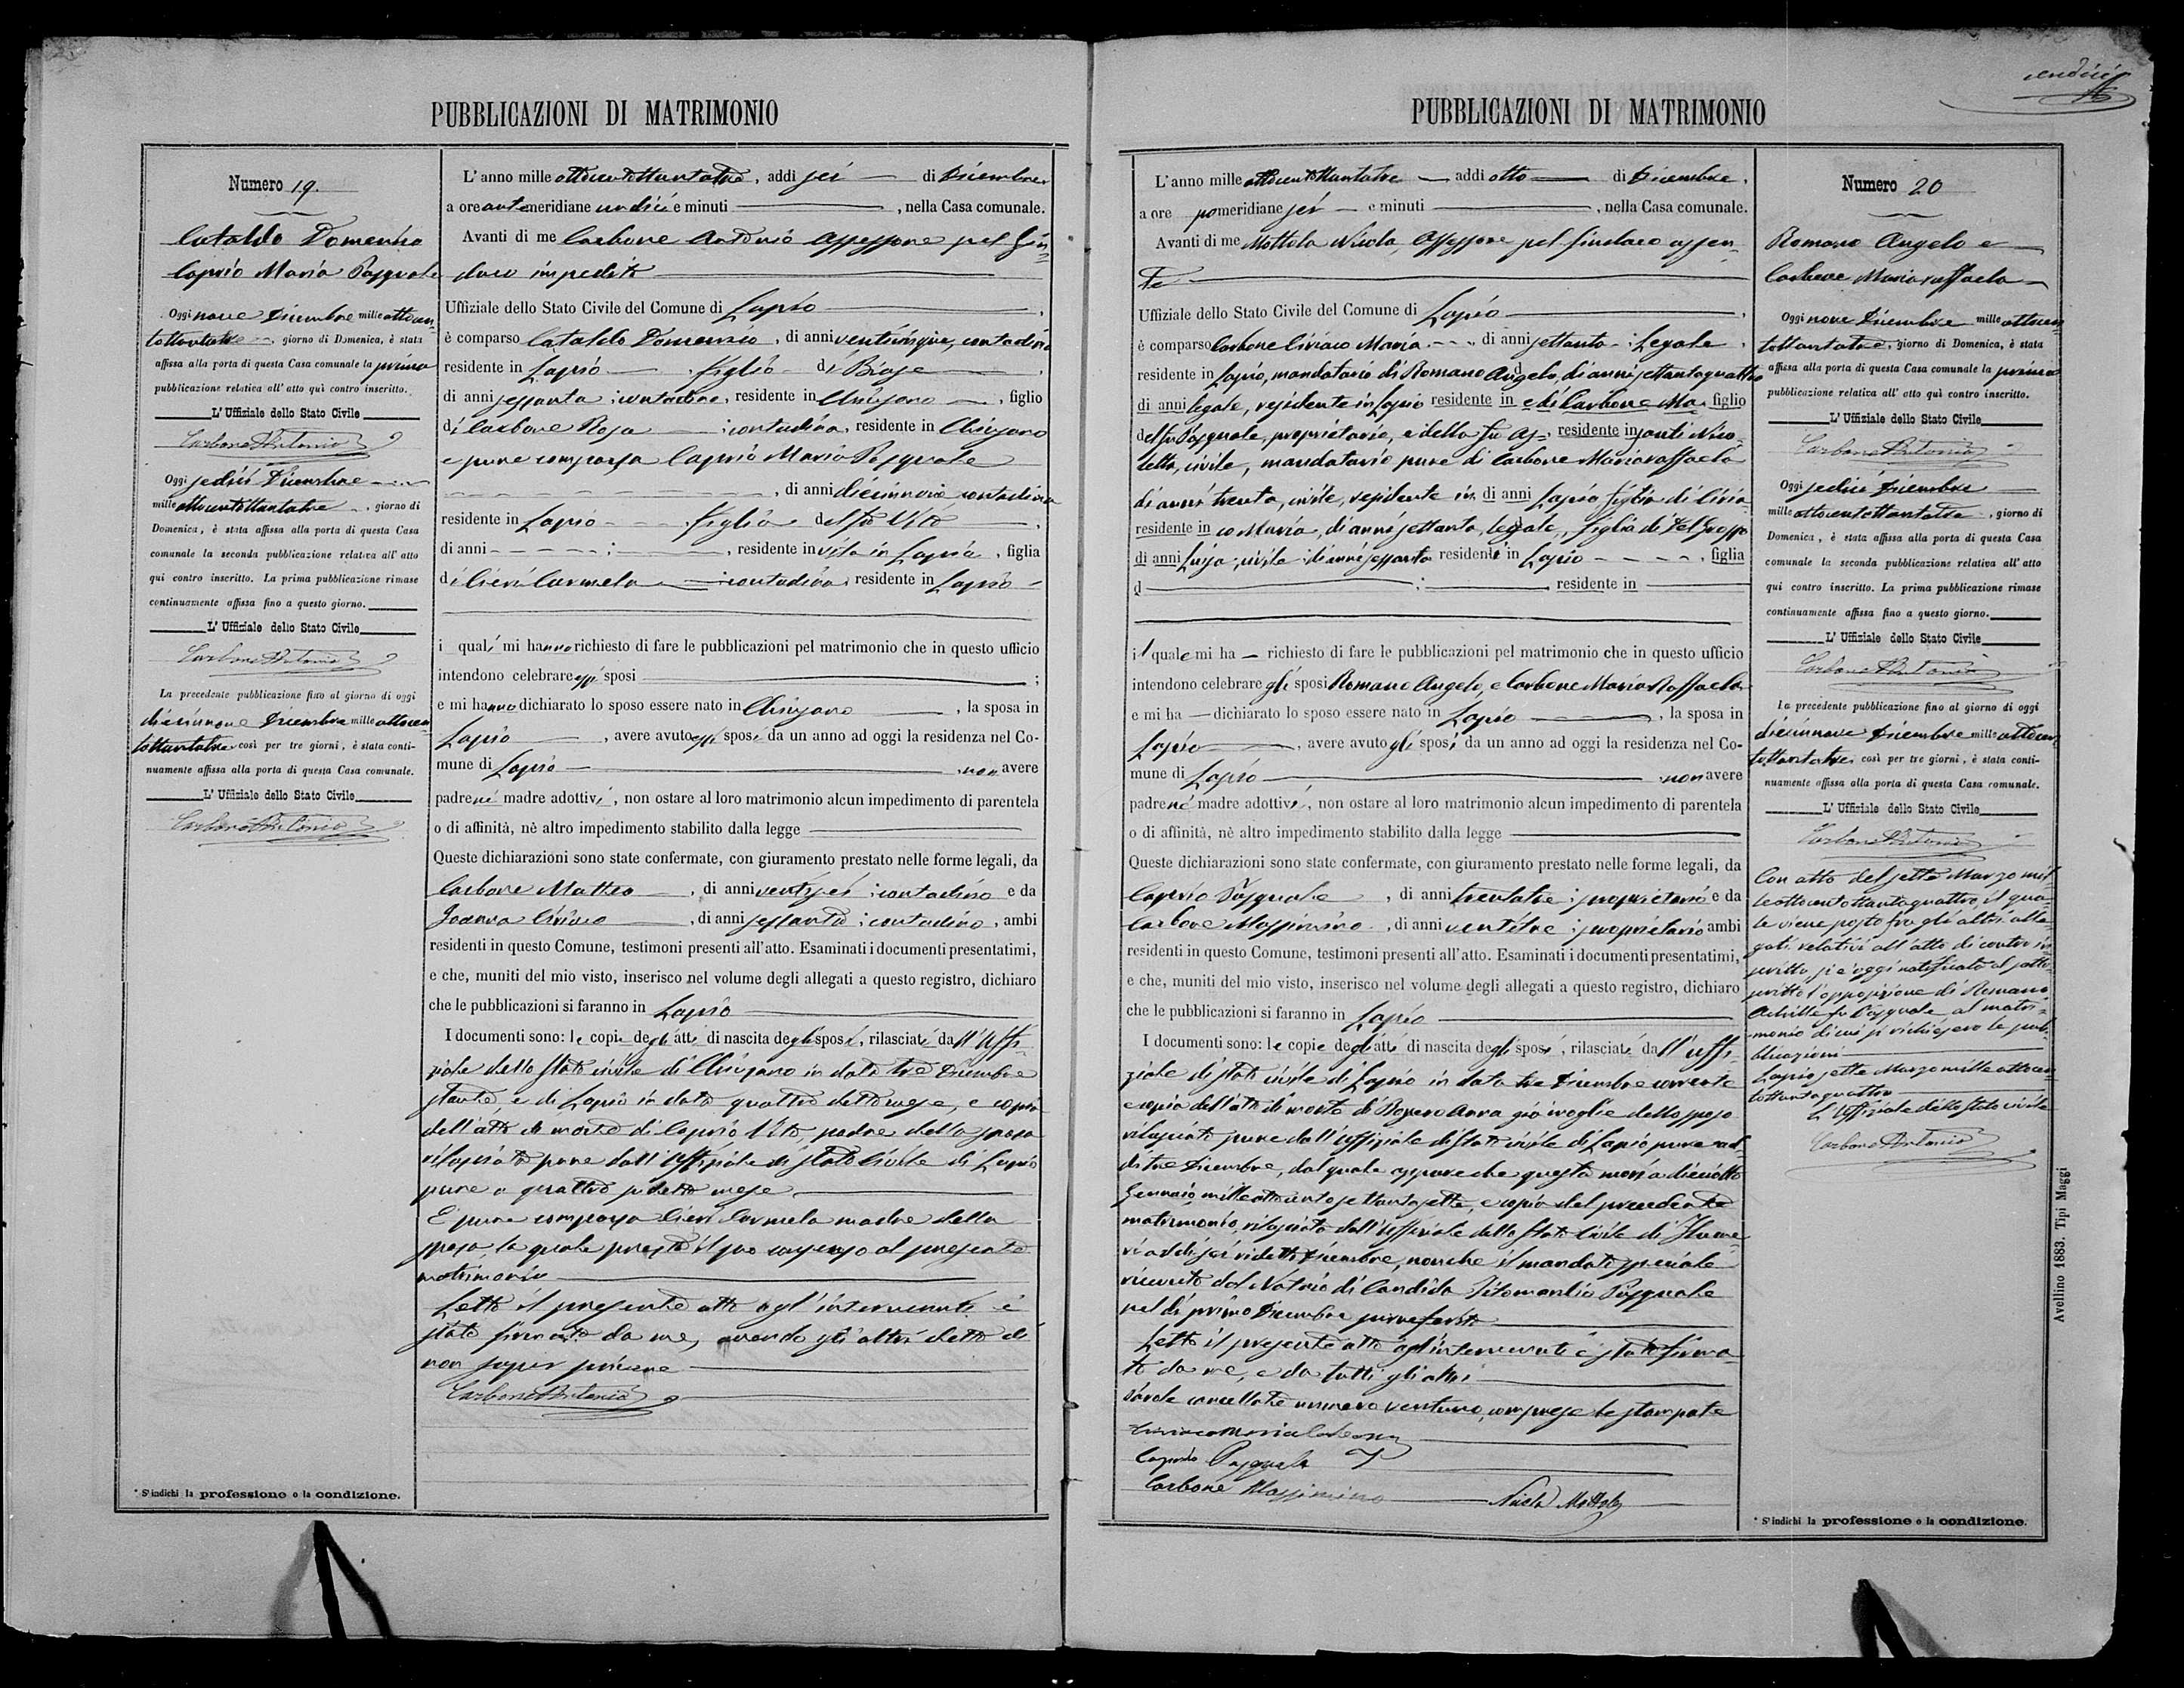 PUBBLICAZIONI DI MATRIMONIO
Numero 19.
Cataldo Domenico
Caprio Maria Pasquale
Oggi nove Dicembre mille ottocen
tottantatre, giorno di Domenica, è stata
affissa alla porta di questa Casa comunale la prima
pubblicazione relativa all' atto quì contro inscritto.
L' Uffiziale dello Stato Civile
Carbone Antonio
Oggi sedici Dicembre
mille ottocentottantatre, giorno di
Domenica, è stata affissa alla porta di questa Casa
comunale la seconda pubblicazione relativa all' atto
qui contro inscritto. La prima pubblicazione rimase
continuamente affissa fino a questo giorno.
L' Uffiziale dello Stato Civile
Carbone Antonio
La precedente pubblicazione fino al giorno di oggi
diciannove Dicembre mille ottocen
tottantatre così per tre giorni, è stata conti-
nuamente affissa alla porta di questa Casa comunale.
L' Uffiziale dello Stato Civile
Carbone Antonio
* S'indichi la professione o la condizione.
L' anno mille ottocentottantatre, addì sei di Dicembre
a ore antemeridiane undici e minuti , nella Casa comunale.
Avanti di me Carbone Antonio Assessore pel Sin-
daco impedito
Uffiziale dello Stato Civile del Comune di Lapio
è comparso Cataldo Domenico, di anni venticinque, contadino
residente in Lapio figlio di Biage
di anni sessanta contadino, residente in , figlio
di Carbone Rosa contadina residente in
e pure comparsa Caprio Maria Pasquale
, di anni diciannove contadina
residente in Lapio figlia del fu Vito
di anni , residente in vita in Lapio, figlia
di Cieri Carmela contadina residente in Lapio
i quali mi hanno richiesto di fare le pubblicazioni pel matrimonio che in questo ufficio
intendono celebrare essi sposi ;
e mi hanno dichiarato lo sposo essere nato in , la sposa in
Lapio , avere avuto essi sposi da un anno ad oggi la residenza nel Co-
mune di Lapio non avere
padre nè madre adottivi, non ostare al loro matrimonio alcun impedimento di parentela
o di affinità, nè altro impedimento stabilito dalla legge
Queste dichiarazioni sono state confermate, con giuramento prestato nelle forme legali, da
Carbone Matteo , di anni ventisei contadino e da
Ciriaco , di anni sessanta contadino, ambi
residenti in questo Comune, testimoni presenti all' atto. Esaminati i documenti presentatimi,
e che, muniti del mio visto, inserisco nel volume degli allegati a questo registro, dichiaro
che le pubblicazioni si faranno in Lapio
I documenti sono: le copie degli atti di nascita degli sposi, rilasciati dall' Uffi-
ziale dello stato civile di in data tre Dicembre
stante, e di Lapio in data quattro detto mese, e copia
dell' atto di morte di Caprio Vito, padre della sposa
rilasciato pure dall' Uffiziale di stato Civile di Lapio
pure a quattro detto mese
È pure comparsa Cieri Carmela madre della
sposa, la quale prestò il suo consenso al presente
matrimonio
Letto il presente atto agl' intervenuti è
stato firmato da me, avendo gli altri detto di
non saper firmare
Carbone Antonio
PUBBLICAZIONI DI MATRIMONIO
L' anno mille ottocentottantatre addì otto di Dicembre
a ore pomeridiane sei e minuti , nella Casa comunale.
Avanti di me Mottola Nicola, Assessore pel Sindaco assen-
te
Uffiziale dello Stato Civile del Comune di Lapio
è comparso Carbone Ciriaco Maria , di anni settanta Legale
residente in Lapio, mandatario di Romano Angelo, di anni settantaquattro
di anni legale, residente in Lapio residente in e di Carbone Ma. figlio
del fu Pasquale, proprietario, e della fu residente in Nico-
letta, civile, mandatario pure di Carbone Mariaraffaela
di anni trenta, civile, residente in di anni Lapio figlia di Ciria-
residente in co Maria, di anni settanta, legale, figlia di Del Grosso
di anni Luisa civile di anni sessanta residente in Lapio , figlia
d residente in
il quale mi ha richiesto di fare le pubblicazioni pel matrimonio che in questo ufficio
intendono celebrare gli sposi Romano Angelo, e Carbone Maria Raffaela
e mi ha dichiarato lo sposo essere nato in Lapio , la sposa in
Lapio , avere avuto gli sposi da un anno ad oggi la residenza nel Co-
mune di Lapio non avere
padre nè madre adottivi, non ostare al loro matrimonio alcun impedimento di parentela
o di affinità, nè altro impedimento stabilito dalla legge
Queste dichiarazioni sono state confermate, con giuramento prestato nelle forme legali, da
Caprio Pasquale , di anni trentatre proprietario e da
Carbone Massimino , di anni ventitre proprietario ambi
residenti in questo Comune, testimoni presenti all' atto. Esaminati i documenti presentatimi,
e che, muniti del mio visto, inserisco nel volume degli allegati a questo registro, dichiaro
che le pubblicazioni si faranno in Lapio
I documenti sono: le copie degli atti di nascita degli sposi, rilasciati dall' uffi-
ziale di stato civile di Lapio in data tre Dicembre corrente
e copia dell' atto di morte di Anna già moglie dello sposo
rilasciato pure dall' uffiziale di stato civile di Lapio pure
di tre Dicembre, dal quale appare che questa morì a diciotto
Gennaio mille ottocento settantasette, e copia del precedente
matrimonio, rilasciato dall' Uffiziale dello Stato Civile di
ri addì sei ridetto Dicembre, nonche il mandato speciale
ricevuto dal Notaio di Candida Pasquale
nel dì primo Dicembre
Letto il presente atto agl' intervenuti è stato firma-
to da me, e da tutti gli altri
Parole cancellate numero ventuno, comprese le stampate
Ciriaco Maria Carbone
Caprio Pasquale
Carbone Massimino Nicola Mottola
Numero 20
Romano Angelo e
Carbone Mariaraffaela
Oggi nove Dicembre mille ottocen
tottantatre, giorno di Domenica, è stata
affissa alla porta di questa Casa comunale la prima
pubblicazione relativa all' atto quì contro inscritto.
L' Uffiziale dello Stato Civile
Carbone Antonio
Oggi sedici Dicembre
mille ottocentottantatre, giorno di
Domenica, è stata affissa alla porta di questa Casa
comunale la seconda pubblicazione relativa all' atto
qui contro inscritto. La prima pubblicazione rimase
continuamente affissa fino a questo giorno.
L' Uffiziale dello Stato Civile
Carbone Antonio
La precedente pubblicazione fino al giorno di oggi
diciannove Dicembre mille ottocen
tottantatre, così per tre giorni, è stata conti-
nuamente affissa alla porta di questa Casa comunale.
L' Uffiziale dello Stato Civile
Carbone Antonio
Con atto del sette Marzo mil-
leottocentottantaquattro, il qua-
le viene posto fra gli altri alle-
gati relativi all' atto di contro in-
scritto, si è oggi notificato al sotto-
scritto l' opposizione di Romano
Achille fu Pasquale al matri-
monio di cui si richiesero le pub-
blicazioni
Lapio sette Marzo mille ottocen
tottantaquattro
L' Uffiziale dello Stato civile
Carbone Antonio
* S'indichi la professione o la condizione.
Avellino 1883. Tipi Maggi